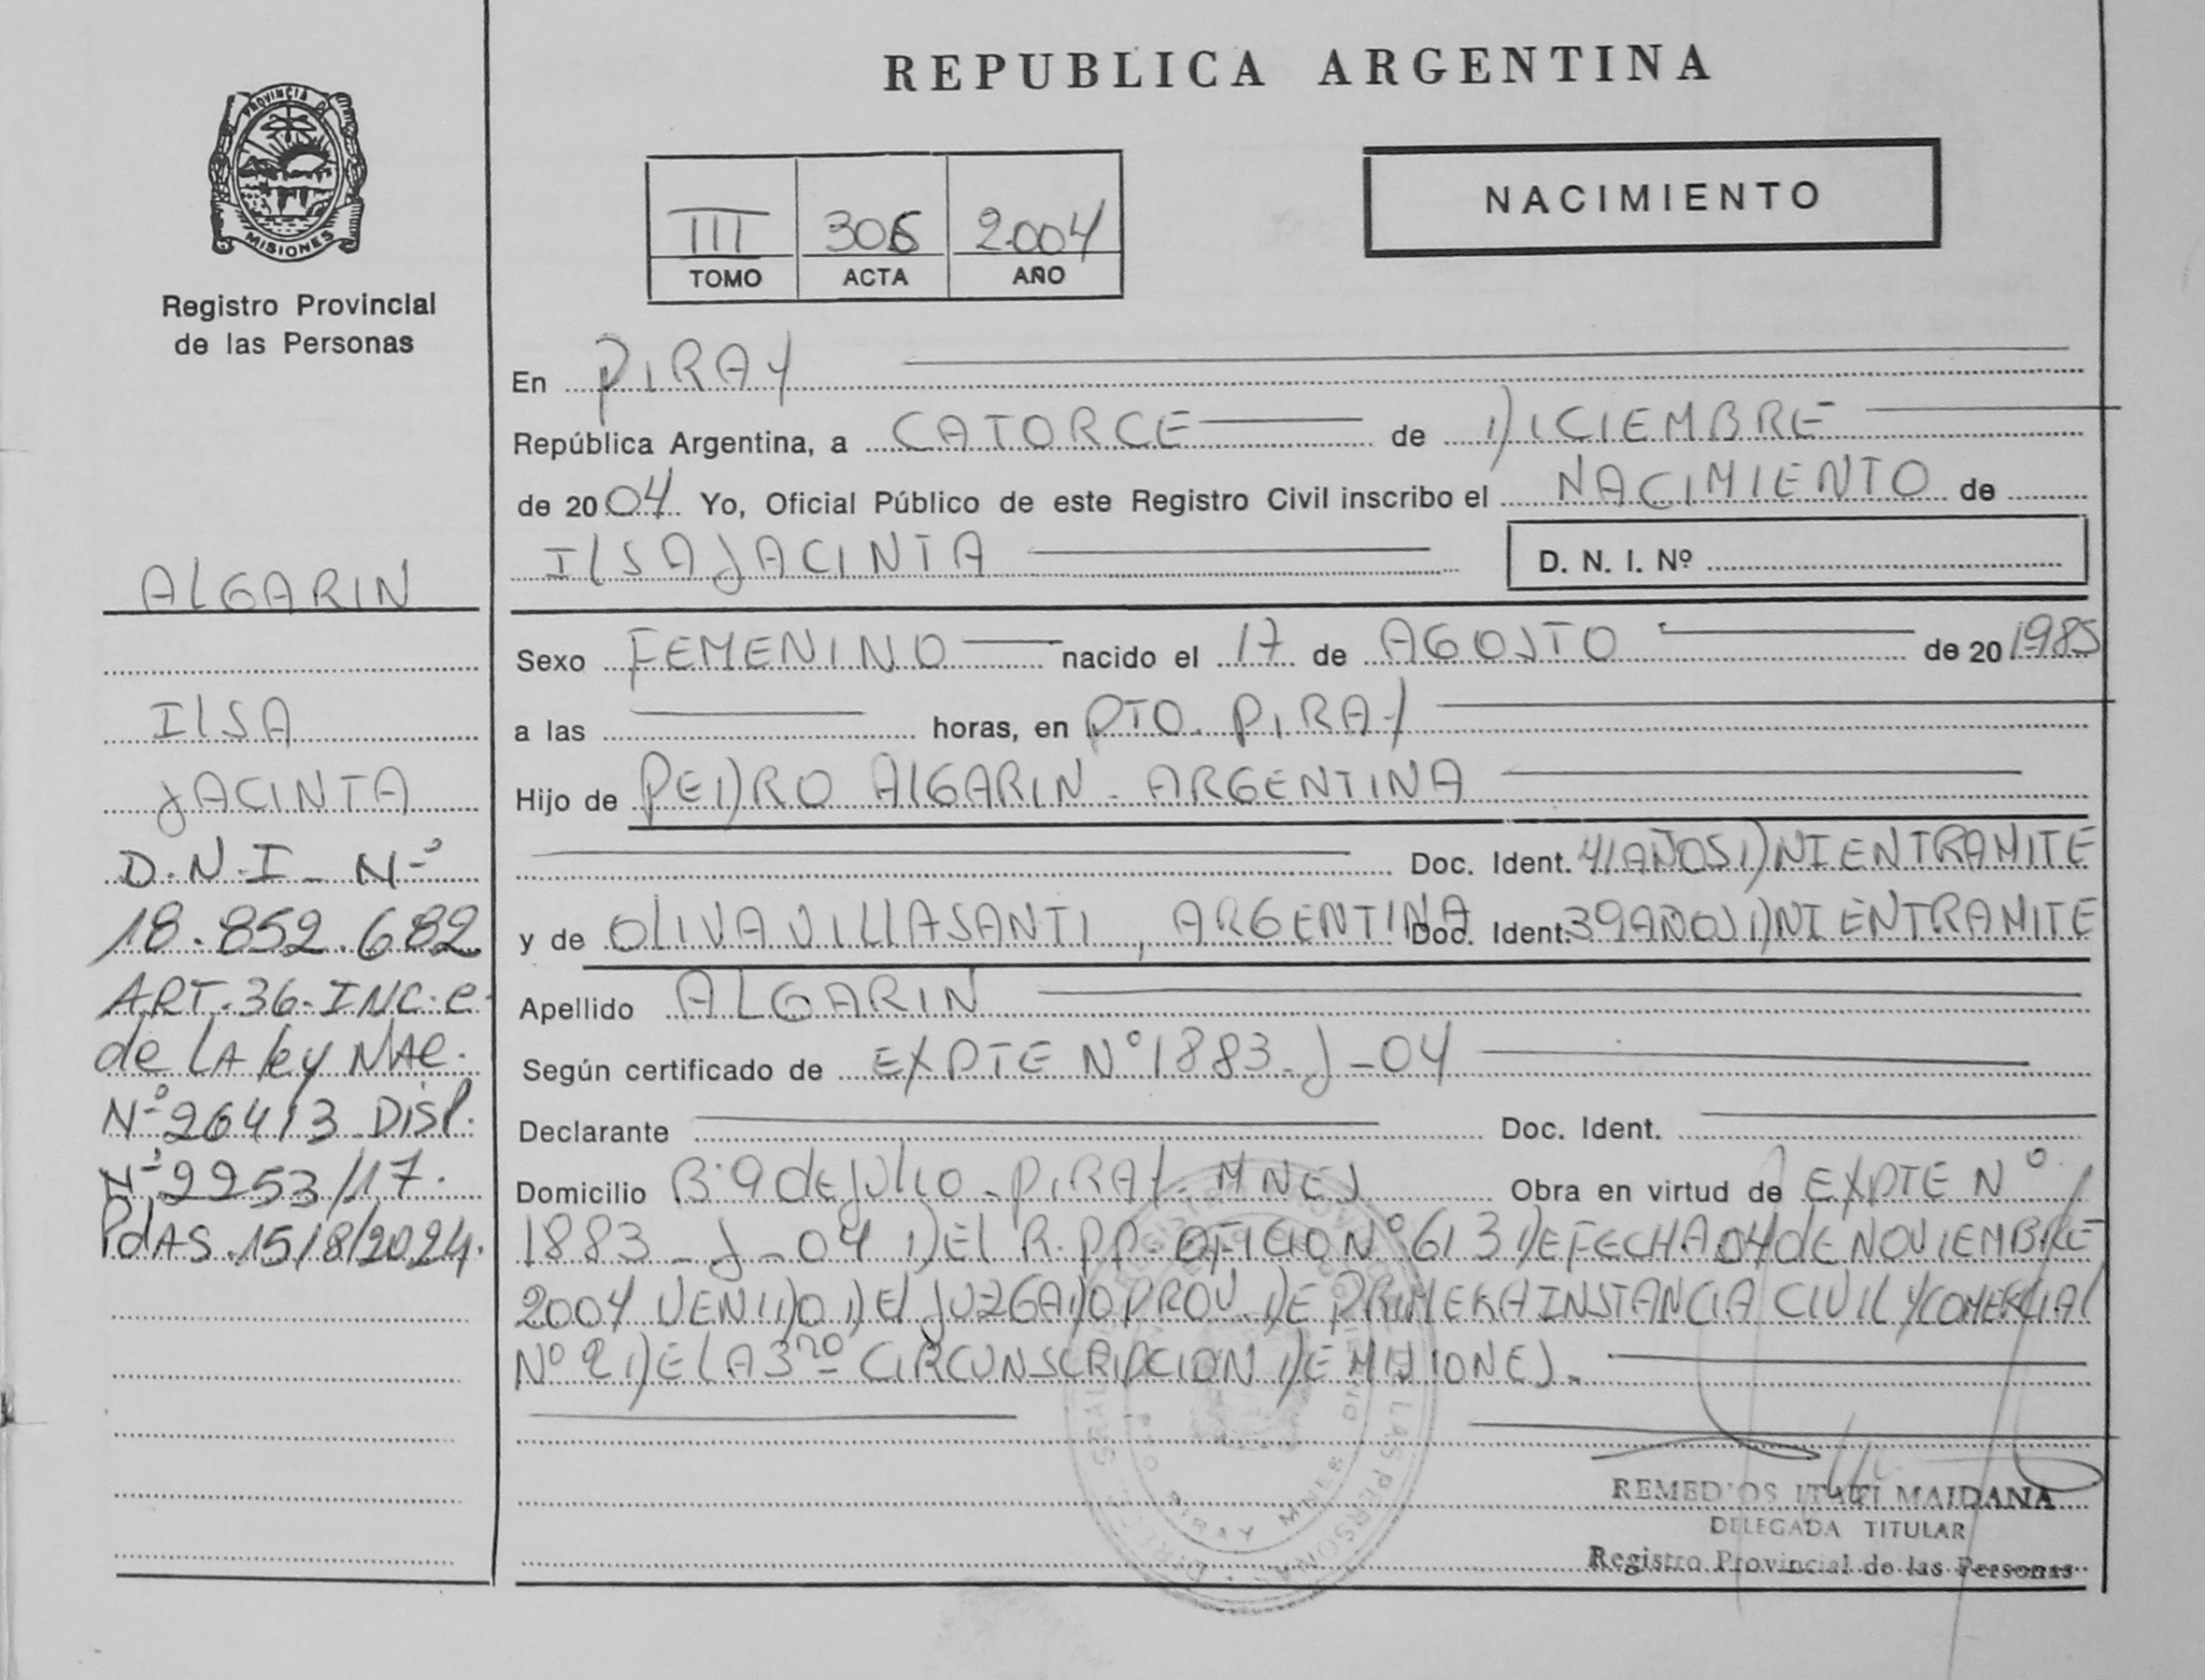 REPUBLICA ARGENTINA
PROVINCIA DE
MISIONES
Registro Provincial
de las Personas
III 306 2.004
TOMO ACTA AÑO
NACIMIENTO
En PIRAY
República Argentina, a CATORCE de DICIEMBRE
de 2004 Yo, Oficial Público de este Registro Civil inscribo el NACIMIENTO de
ILSA JACINTA D. N. I. Nº
Sexo FEMENINO nacido el 17 de AGOSTO de 20 1985
a las horas, en PTO. PIRAY
Hijo de PEDRO ALGARIN - ARGENTINA
Doc. Ident. 41 AÑOS DNI EN TRAMITE
y de OLIVA VILLASANTI, ARGENTINA Doc. Ident. 39 AÑOS DNI EN TRAMITE
Apellido ALGARIN
Según certificado de EXPTE Nº 1883-J-04
Declarante Doc. Ident.
Domicilio Bº 9 DE JULIO - PIRAY - MNES Obra en virtud de EXPTE Nº
1883-J-04 DEL R.PP. OFICIO Nº 613 DE FECHA 04 dE NOVIEMBRE
2004 VENIDO DEL JUZGADO PROV. DE PRIMERA INSTANCIA CIVIL Y COMERCIAL
Nº 2 DE LA 3ra CIRCUNSCRIPCION DE MISIONES.
REMEDIOS ITATI MAIDANA
DELEGADA TITULAR
Registro Provincial de las Personas
ALGARIN
ILSA
JACINTA
D.N.I - Nº
18.852.682
ART. 36. INC. C
de LA ley NAC.
Nº 26413 DISP.
Nº 2253/17.
PdAS. 15/8/2024.
PIRAY MNES